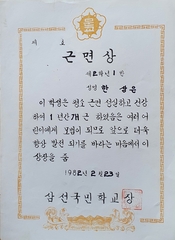 제 호
근면상
제2학년 1반
성명 한
이 학생은 평소 근면 성실하고 건강
하여 1년간 개근 하였음은 여러 어
린이에게 모범이 되므로 앞으로 더욱
항상 발전 되기를 바라는 마음에서 이
상장을 줌
1982년 2월 23일
삼선국민학교장